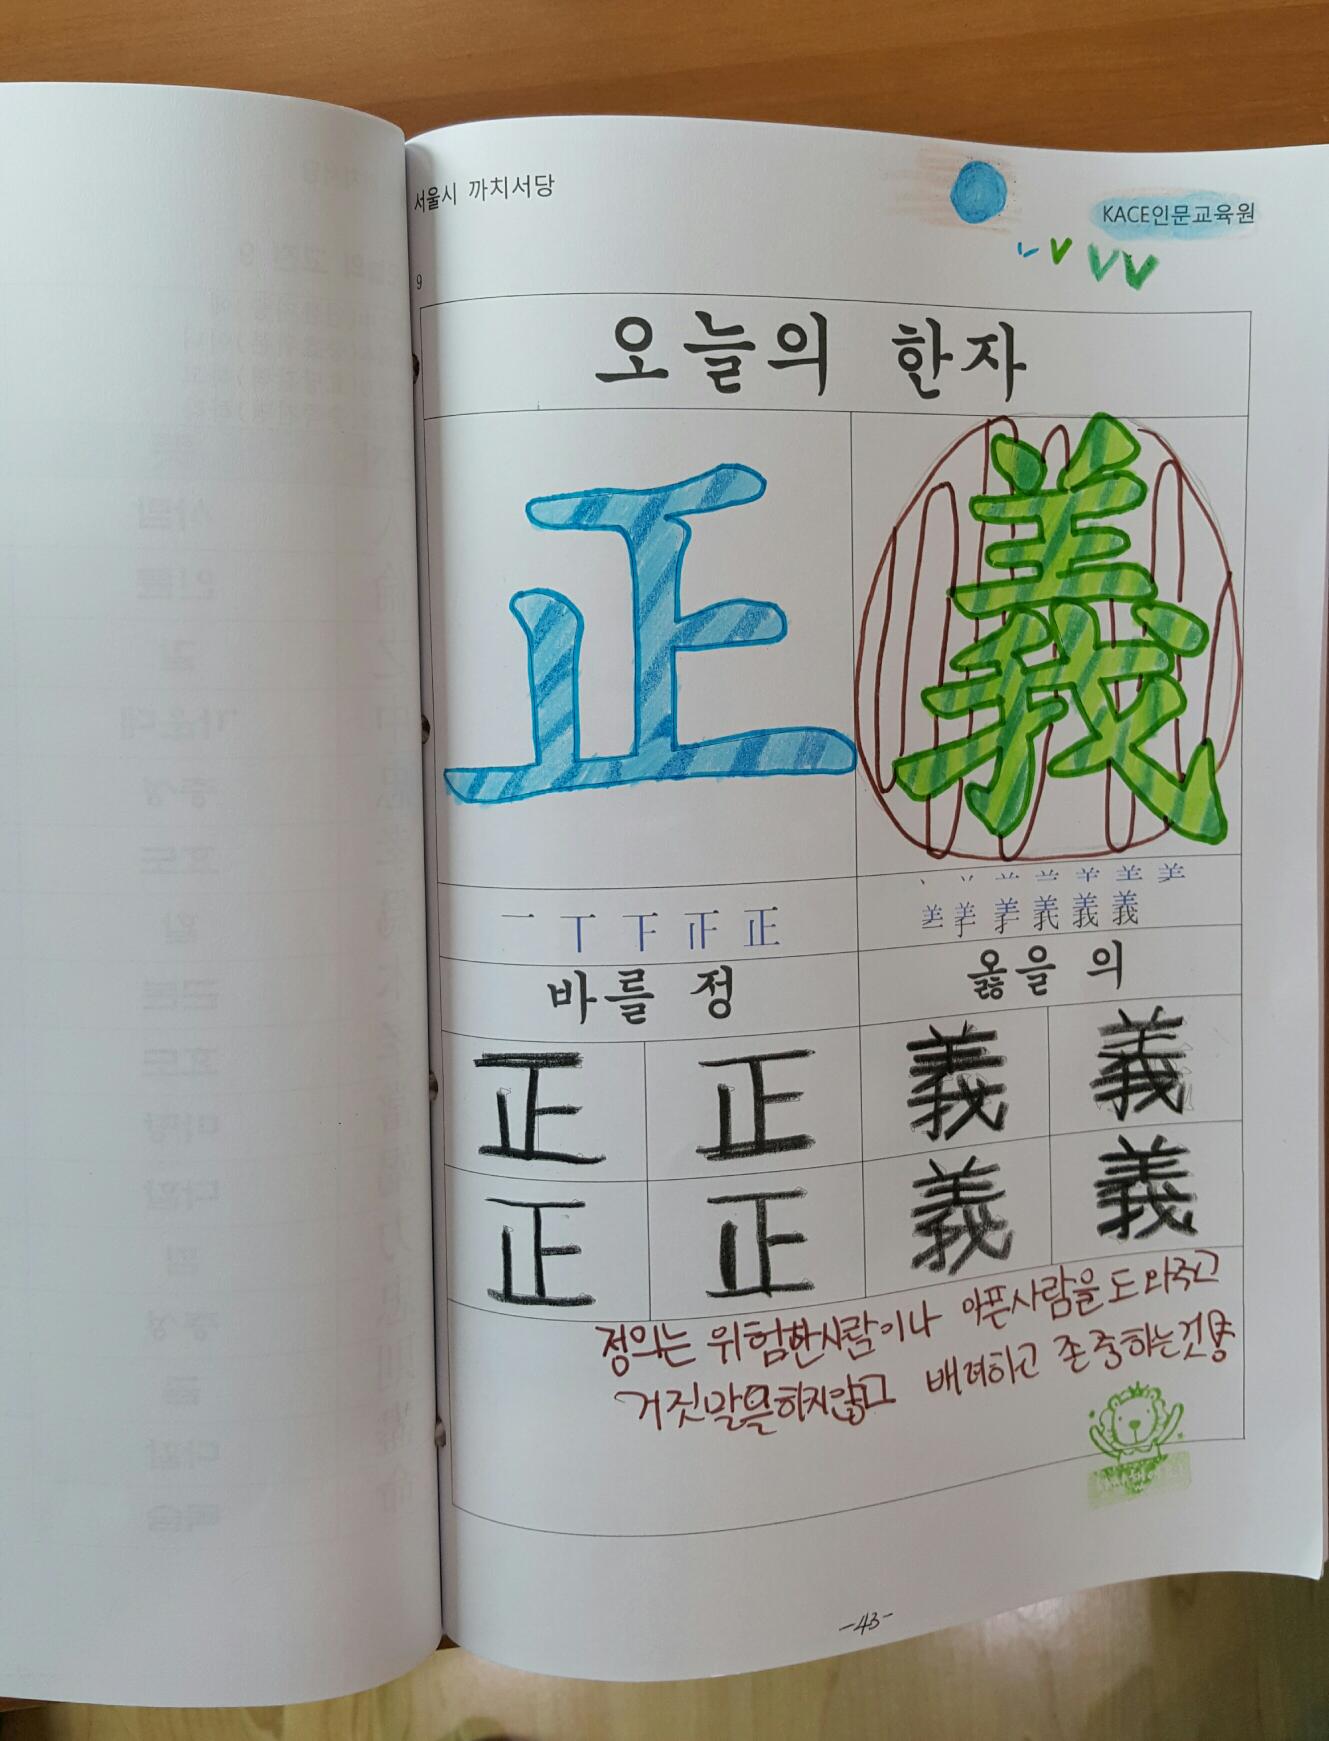 서울시 까치서당
KACE인문교육원
9
오늘의 한자
正 義
바를 정
옳을 의
正 正 義 義
正 正 義 義
정의는 위험한사람이나 아픈사람을도와주고
거짓말을하지않고 배려하고 존중하는것
-43-